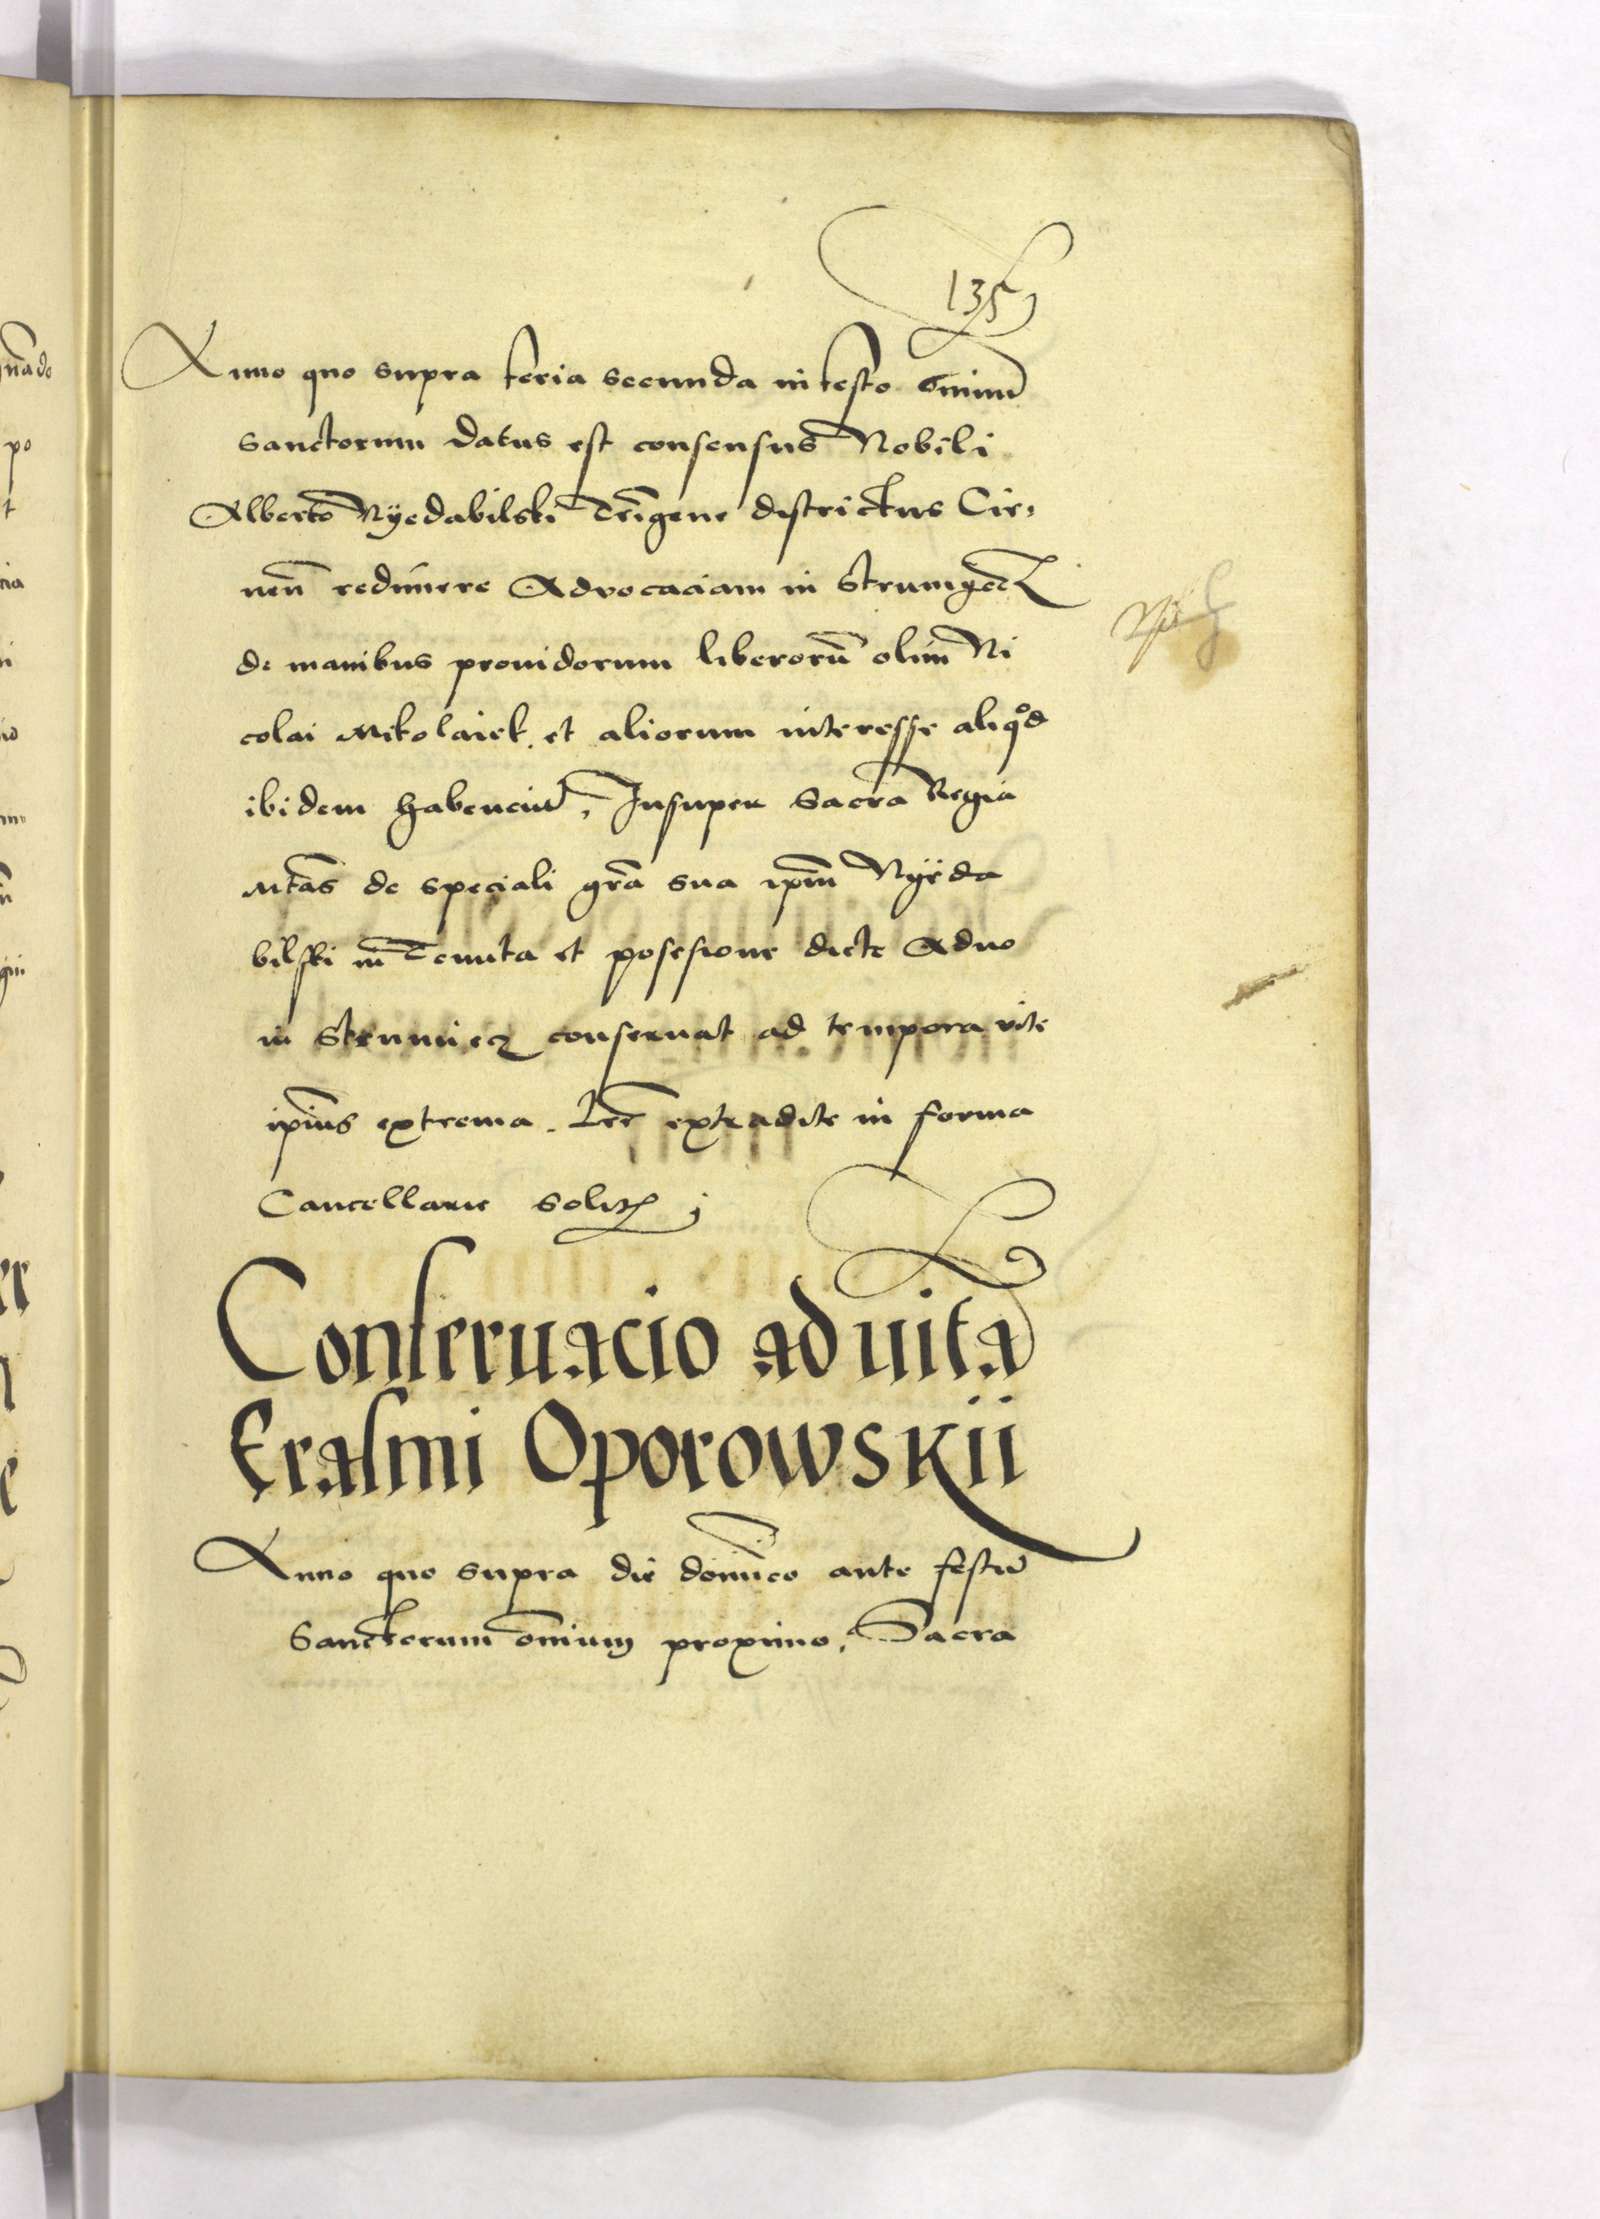 135
Anno quo supra feria secunda in festo Omniū
Sanctorum datus est consensus Nobili
Alberto Nyedabilski Terrigene districtus Cir-
nen̄ redimere Advocaciam in Strumyecz
de manibus prouidorum liberorū olim Ni
colai Mikolaiek et aliorum interesse aliqͦd
ibidem habenciū, Insuper Sacra Regia
Mtās de speciali grā sua ipm̄ Nyeda
bilski in Tenuta et posesione dicte Aduo
in Strumiecz conseruat ad tempora vite
ip̄ius extrema. Lrē extradite in forma
Cancellarie solita
Conseruacio ad uitā
Erasmi Oporowskii
Anno quo supra die dominico ante festū
Sanctorum om̄ium proximo, Sacra